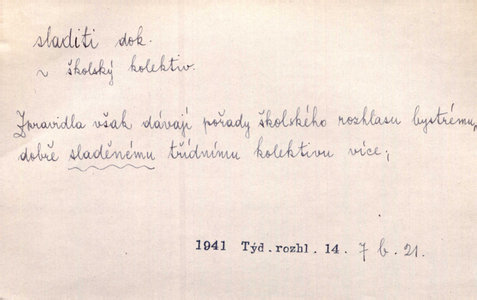 sladiti dok.
~ školský kolektiv.
Zpravidla však dávají pořady školského rozhlasu bystrému,
dobře sladěnému třídnímu kolektivu více;
1941 Týd.rozhl. 14. 7 b. 21.